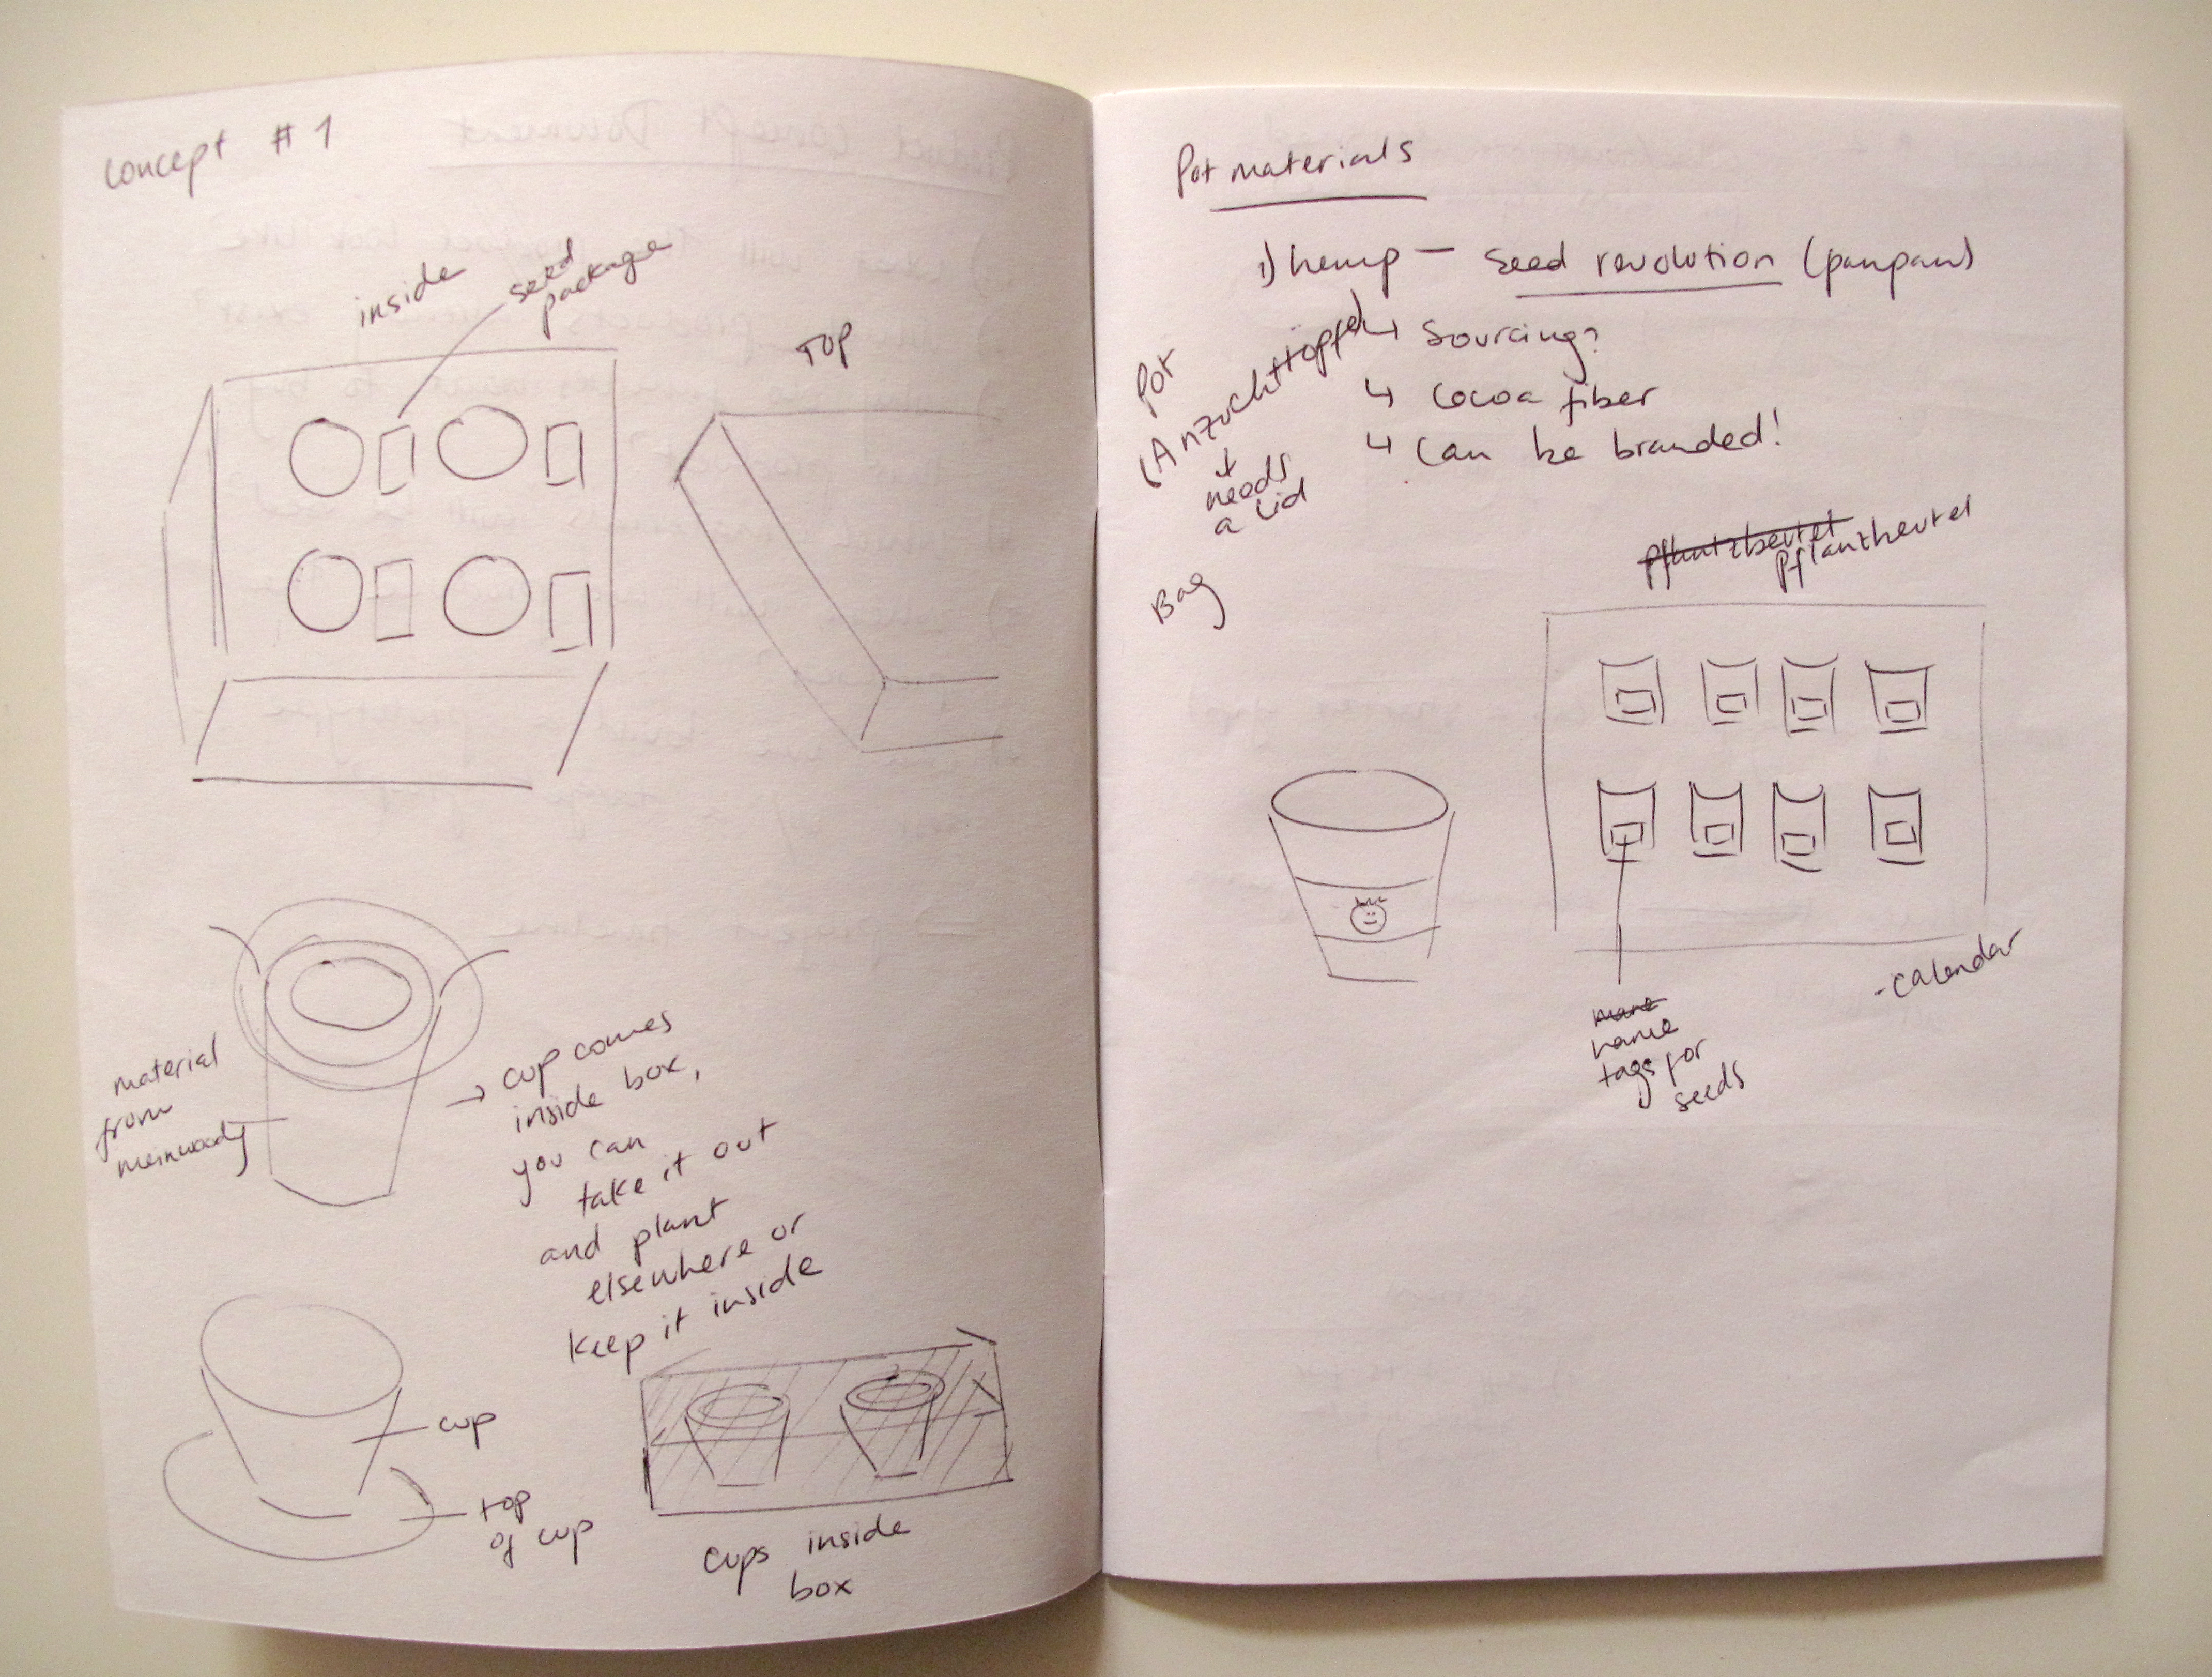 concept #1
inside
seed
package
TOP
material
from
meinwoody
→ cup comes
inside box,
you can
take it out
and plant
elsewhere or
keep it inside
cup
top
of cup
cups inside
box
Pot materials
1) hemp — seed revolution (panpan)
↳ sourcing?
↳ cocoa fiber
↳ can be branded!
Pot
(Anzuchttöpfe)
+
needs
a lid
Bag
Pflantzbeutel
Pflanzbeutel
name
tags for
seeds
- calendar